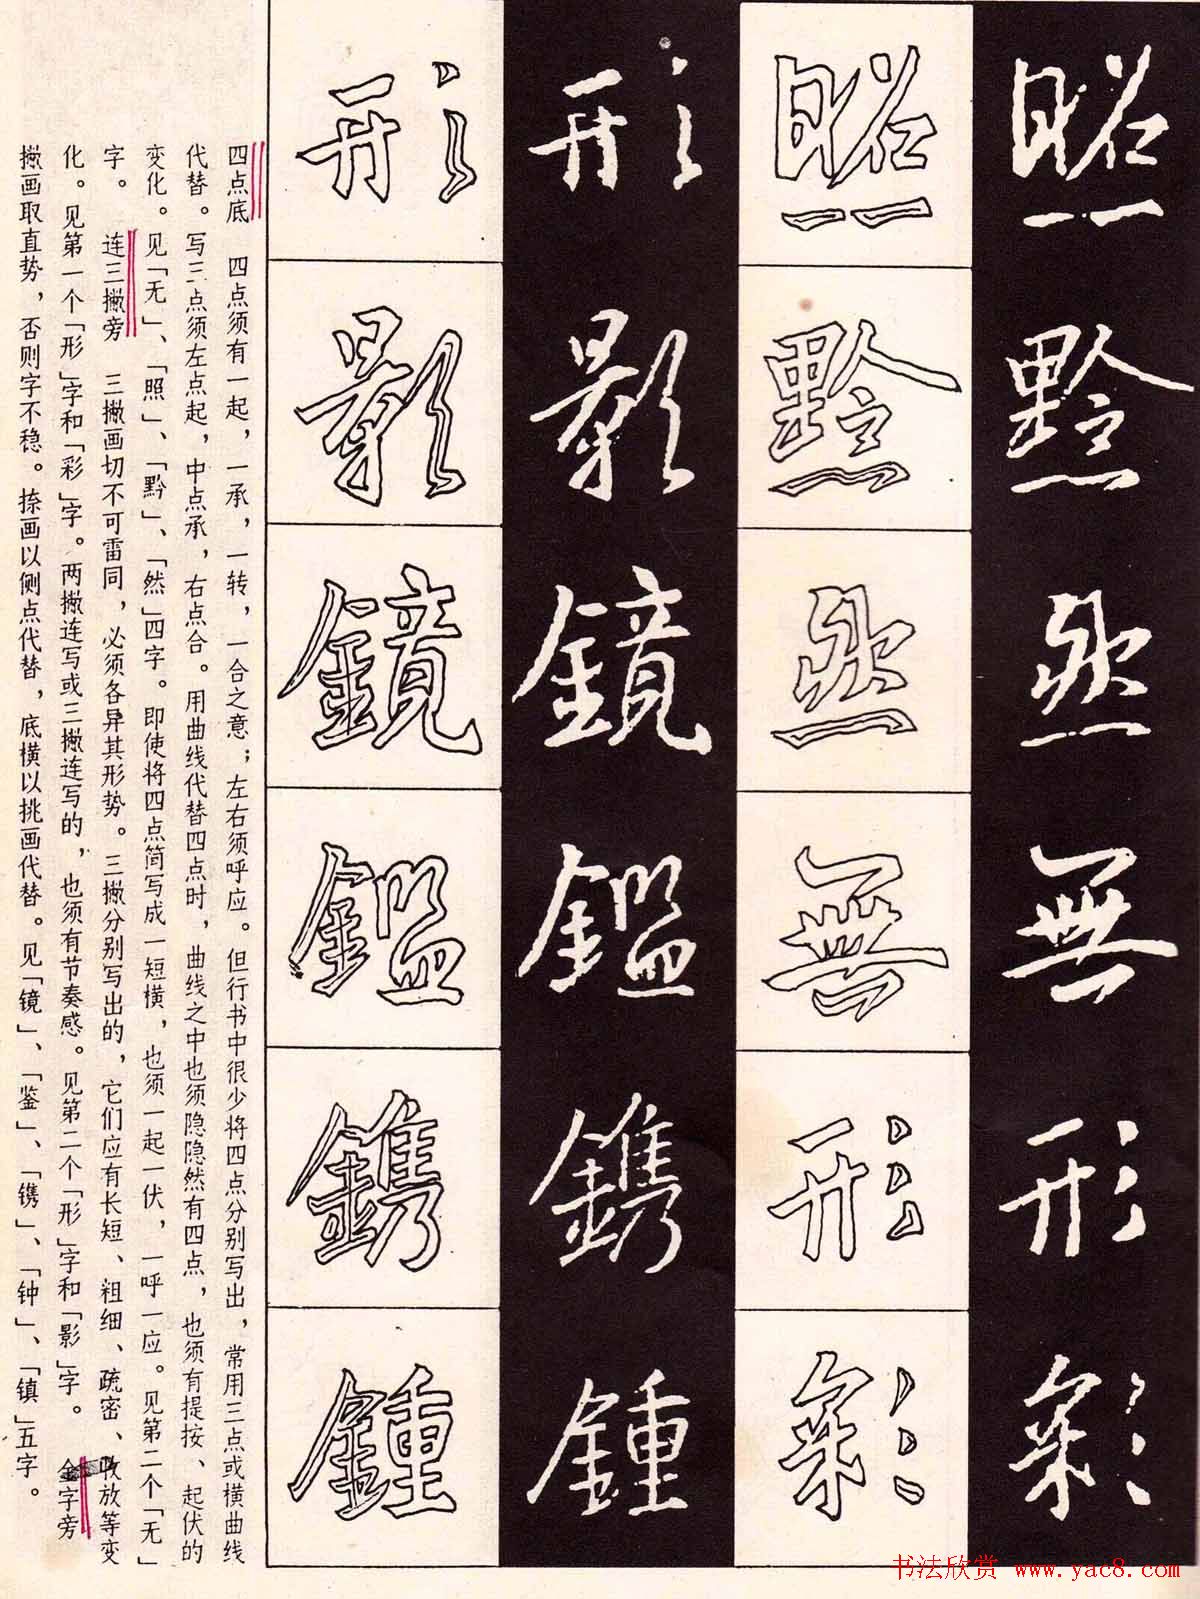 照黔然無形彩
照黔然無形彩
形影鏡鑑鐫鍾
形影鏡鑑鐫鍾
四点底　四点须有一起，一承，一转，一合之意；左右须呼应。但行书中很少将四点分别写出，常用三点或横曲线
代替。写三点须左点起，中点承，右点合。用曲线代替四点时，曲线之中也须隐隐然有四点，也须有提按、起伏的
变化。见「无」、「照」、「黔」、「然」四字。即使将四点简写成一短横，也须一起一伏，一呼一应。见第二个「无」
字。　连三撇旁　三撇画切不可雷同，必须各异其形势。三撇分别写出的，它们应有长短、粗细、疏密、收放等变
化。见第一个「形」字和「彩」字。两撇连写或三撇连写的，也须有节奏感。见第二个「形」字和「影」字。　金字旁
撇画取直势，否则字不稳。捺画以侧点代替，底横以挑画代替。见「镜」、「鉴」、「镌」、「钟」、「镇」五字。
书法欣赏 www.yac8.com